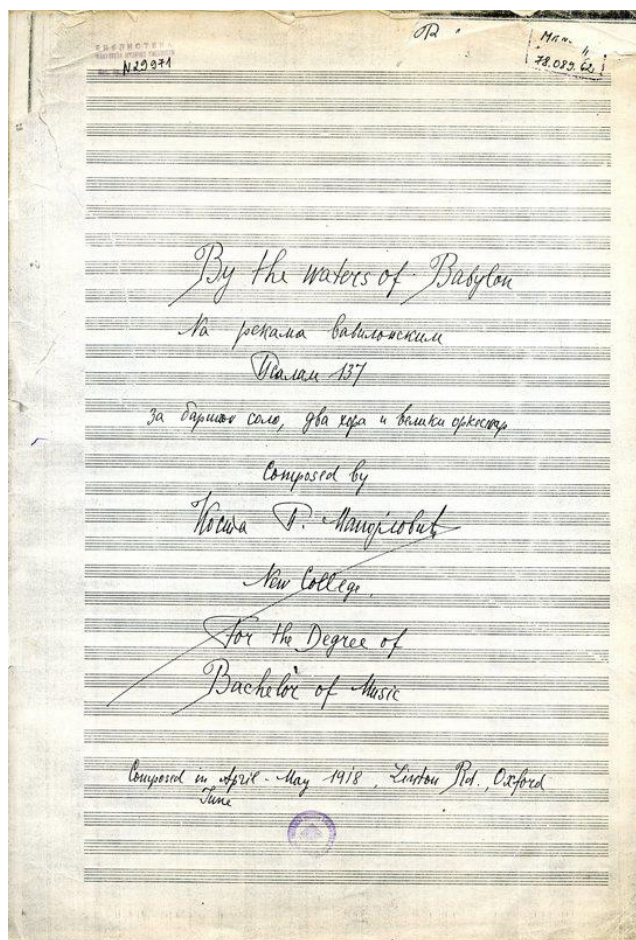 БИБЛИОТЕКА
N29971
78.089.62
By the waters of Babylon
На рекама вавилонским
Псалам 137
за баритон соло, два хора и велики оркестар
Composed by
Коста П. Манојловић
New College.
For the Degree of
Bachelor of Music
Composed in April - May 1918, Linton Rd., Oxford
June